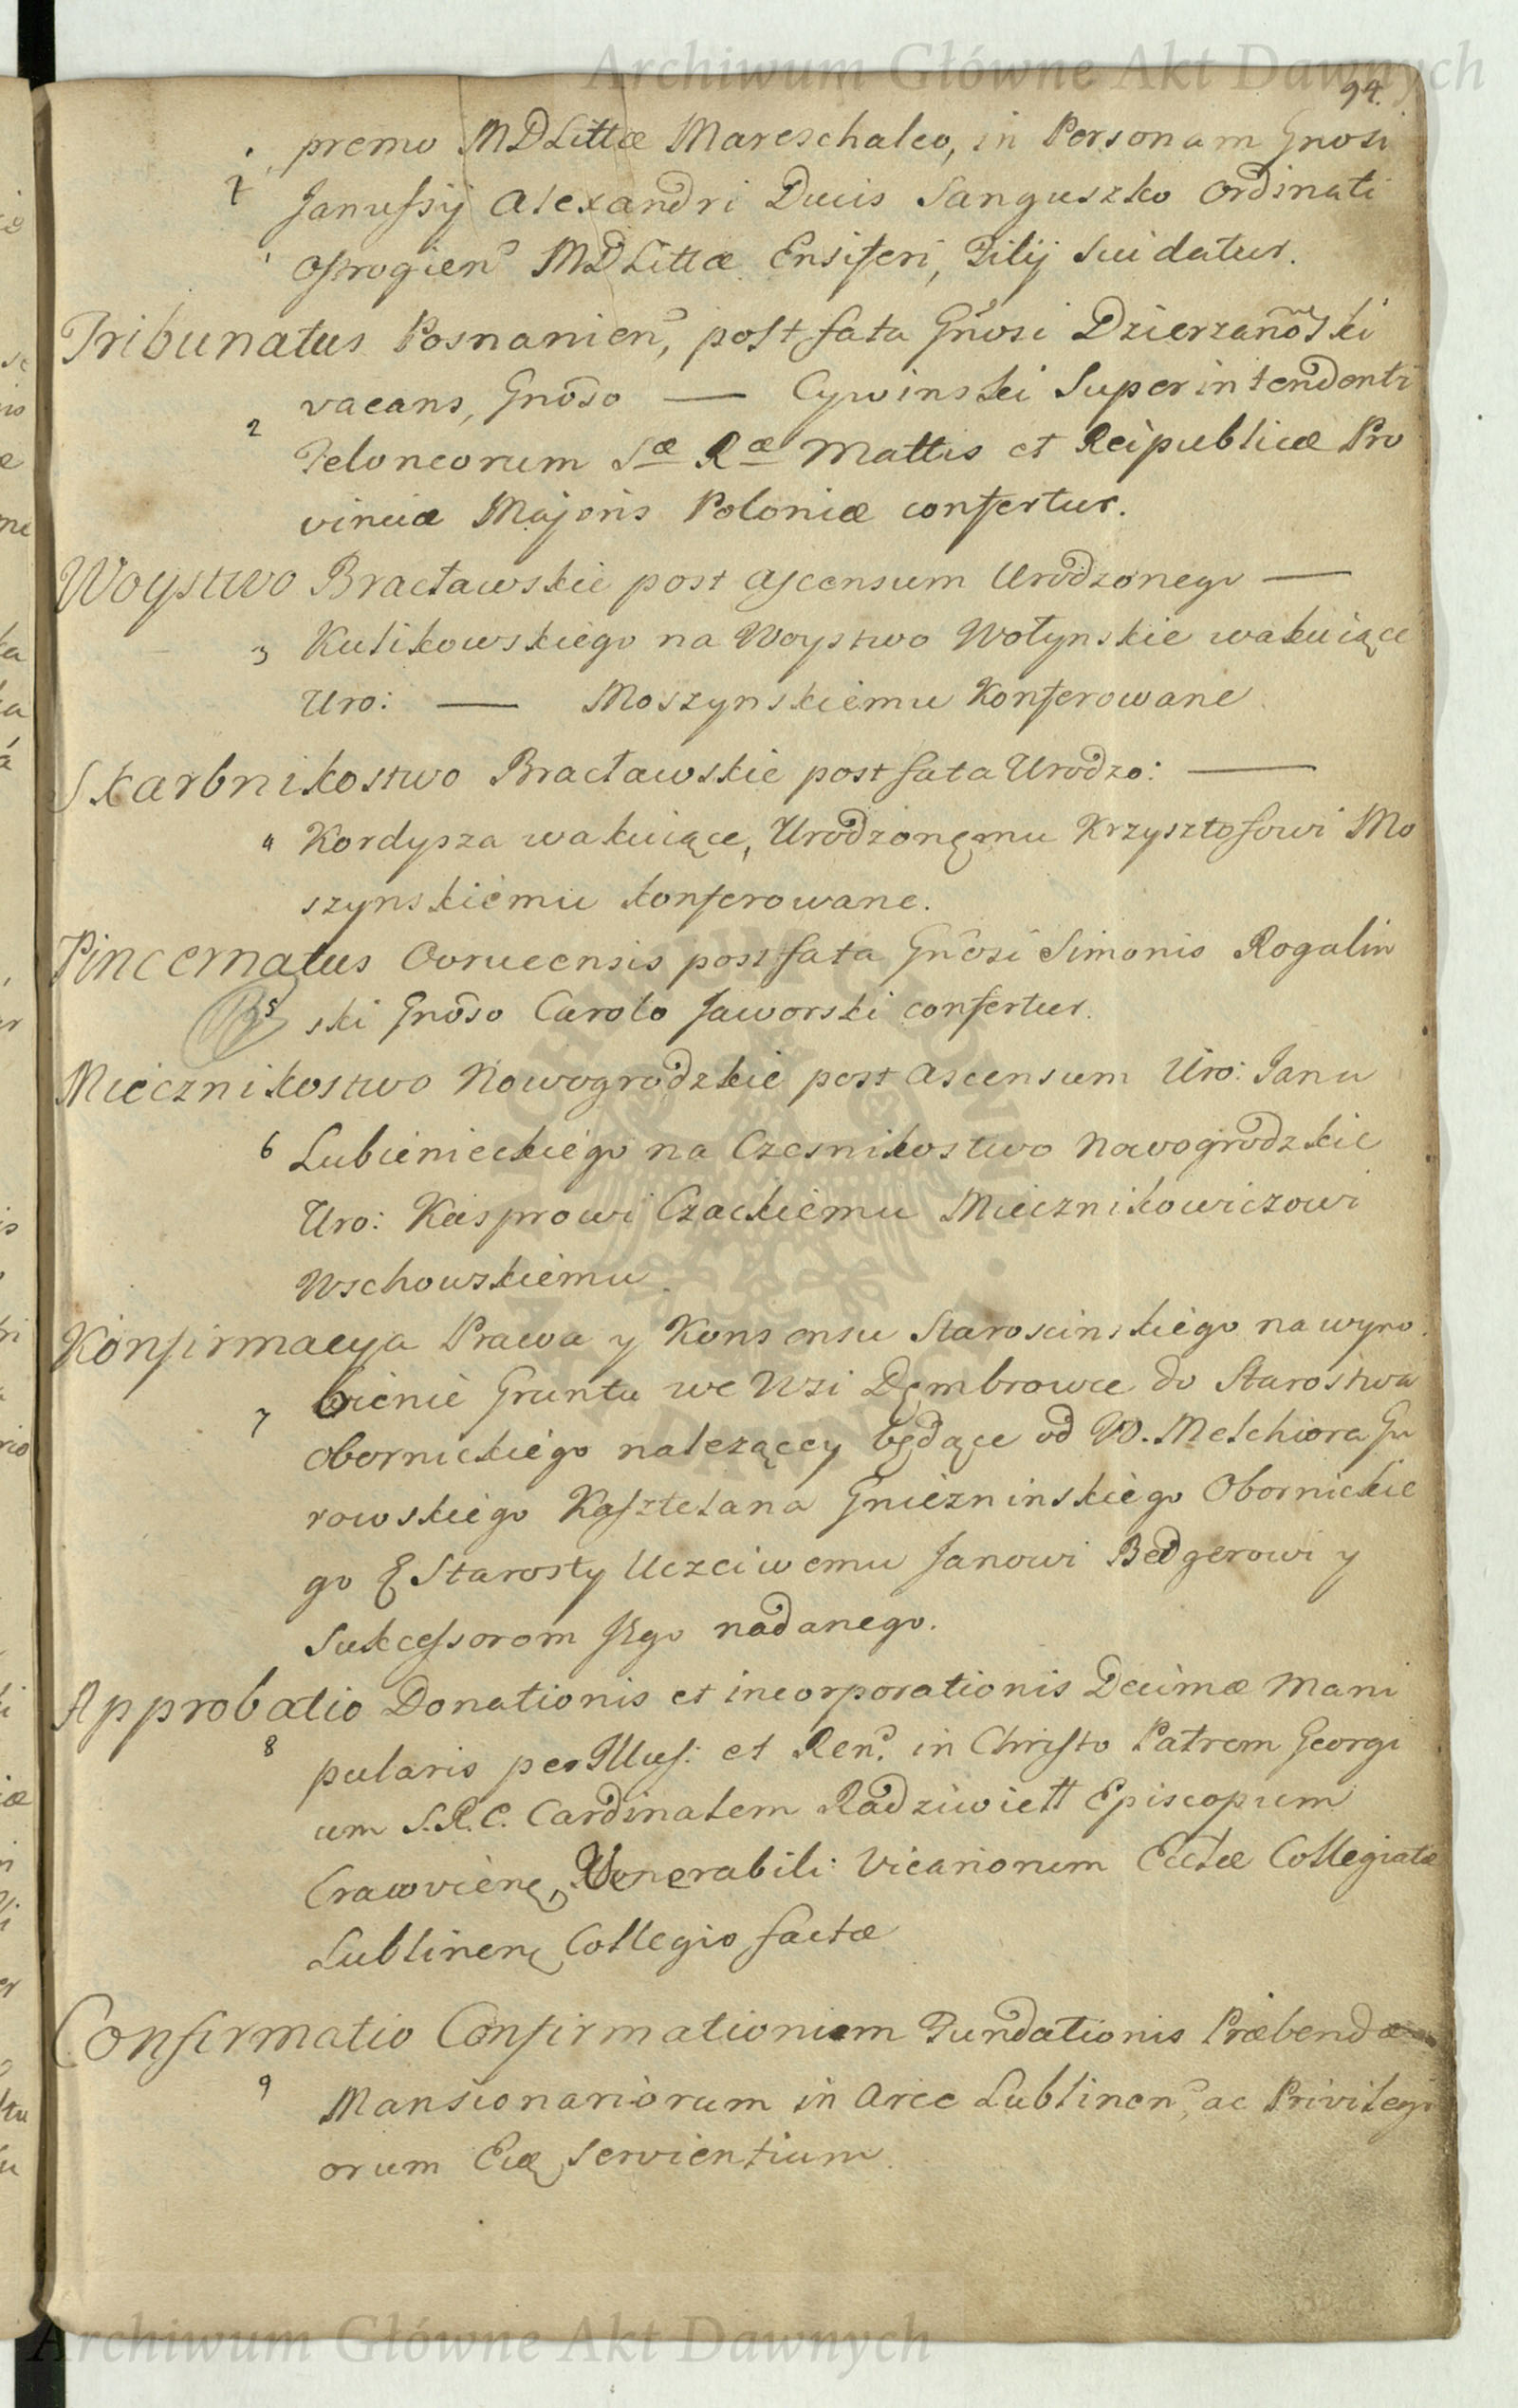 Archiwum Główne Akt Dawnych
94.
premo MDLittæ Mareschalco, in Personam Gnosi
1 Janussij Alexandri Ducis Sanguszko Ordinati
Ostrogien MDLittæ Ensiferi, Filij Sui datur.
Tribunatus Posnanien, post fata Gnosi Dzierzanowski
vacans, Gnoso — Cywinski Superintendenti
2
Teloneorum Sæ Ræ Mattis et Reipublicæ Pro
vinciæ Majoris Poloniæ confertur.
Woystwo Bracławskie post ascensum Urodzonego —
3 Kulikowskiego na Woystwo Wołynskie wakuiące
Uro: — Moszynskiemu Konferowane
Skarbnikostwo Bracławskie post fata Urodzo: —
4 Kordysza wakuiące, Urodzonęmu Krzysztofowi Mo
szynskiemu konferowane.
Pincernatus Ovrucensis post fata Gnosi Simonis Rogalin
5 ski Gnoso Carolo Jaworski confertur.
Miecznikostwo Nowogrodzkie post ascensum Uro: Jana
6 Lubienieckiego na Czesnikostwo Nowogrodzkie
Uro: Kasprowi Czackiemu Miecznikowiczowi
Wschowskiemu
Konfirmacya Prawa y Konsensu Staroscinskiego na wyro
bienie Gruntu we Wsi Dęmbrowce do Starostwa
7
Obornickiego nalezącey będące od W. Melchiora Gu
rowskiego Kasztelana Gniezninskiego Obornickie
go Starosty Uczciwemu Janowi Bedgerowi y
Sukcessorom JEgo nadanego.
Approbatio Donationis et incorporationis Decimæ Mani
8
pularis per Illus: et Ren. in Christo Patrem Georgi
um S.R.C. Cardinalem Radziwiełł Episcopum
Cracovien, Venerabili: Vicariorum Ecclæ Collegiatæ
Lublinen Collegio factæ
Confirmatio Confirmationum Fundationis Præbendæ
9
Mansionariorum in Arce Lublinen, ac Privilegi
orum Eis servientium.
Archiwum Główne Akt Dawnych